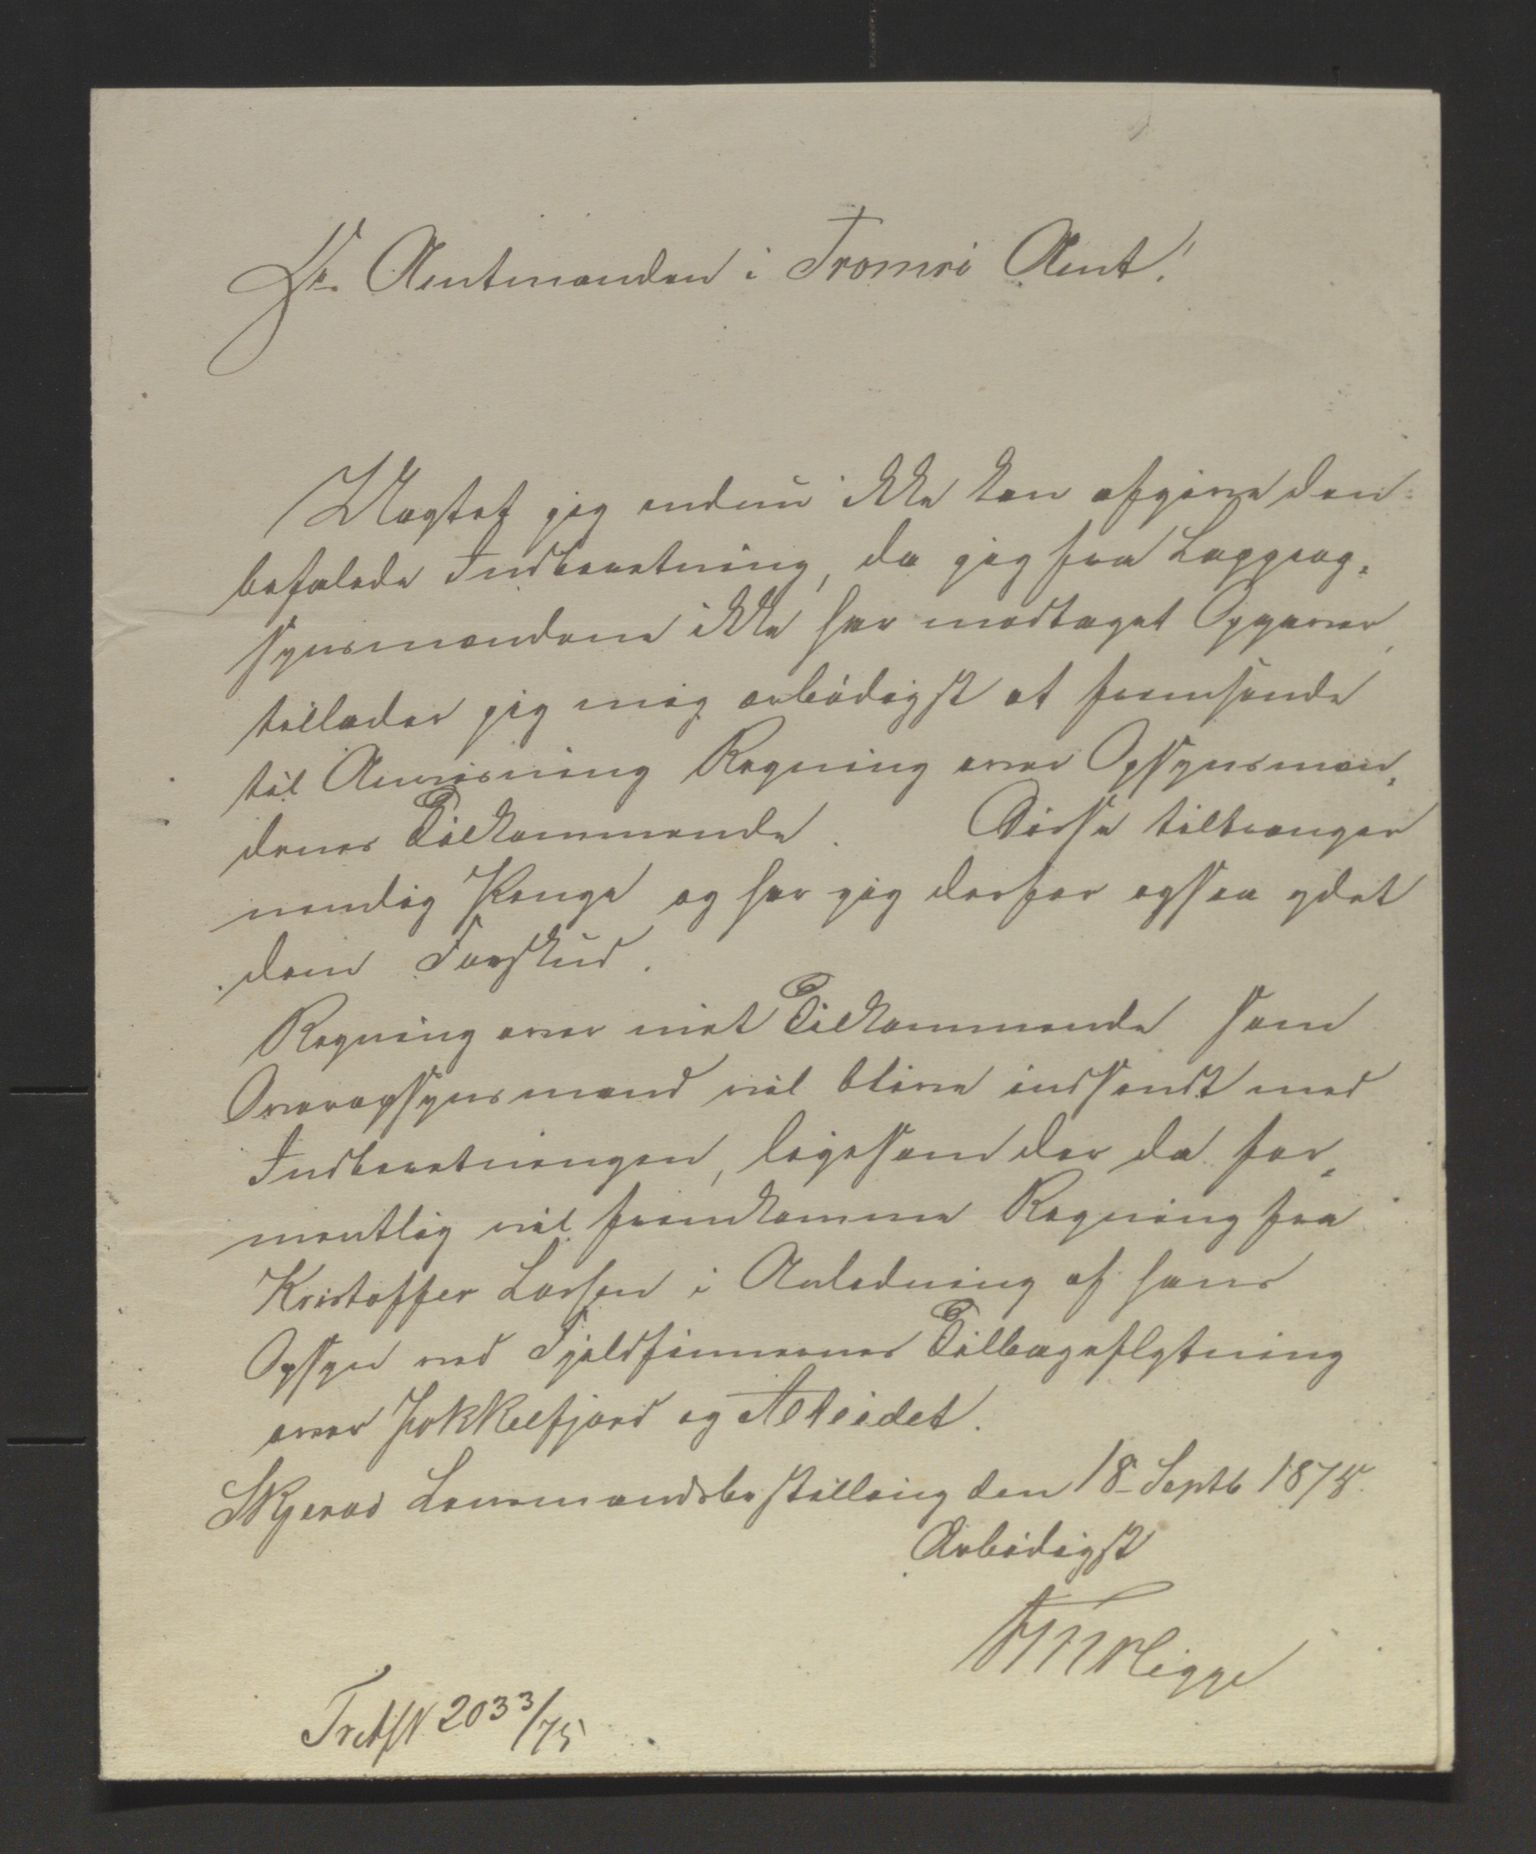 Hr. Amtmanden i Tromsø Amt!
Uagtet jeg endnu ikke kan afgive den
befalede Indberetning, da jeg fra Lappeop-
synsmændene ikke har modtaget Opgaver,
tillader jeg mig ærbødigst at fremsende
til Anvisning Regning over Opsynsmæn-
denes Tilkommende. Disse tiltrænger
nemlig Penge og har jeg derfor ogsaa ydet
dem Forskud.
Regning over mit Tilkommende som
Overopsynsmand vil blive indsendt med
Indberetningen, ligesom der da for-
mentlig vil fremkomme Regning fra
Kristoffer Larsen i Anledning af hans
Opsyn ved Fjeldfinnernes Tilbageflytning
over Jøkkelfjord og Alteidet.
Skjervø Lensmandsbestilling den 18 Septb 1875.
Ærbødigst
Higge
2033/75